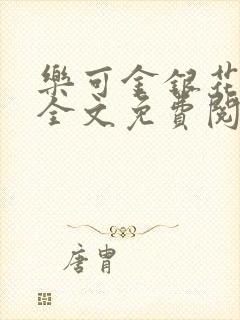 樂可金銀花
全文免費閱
唐胄